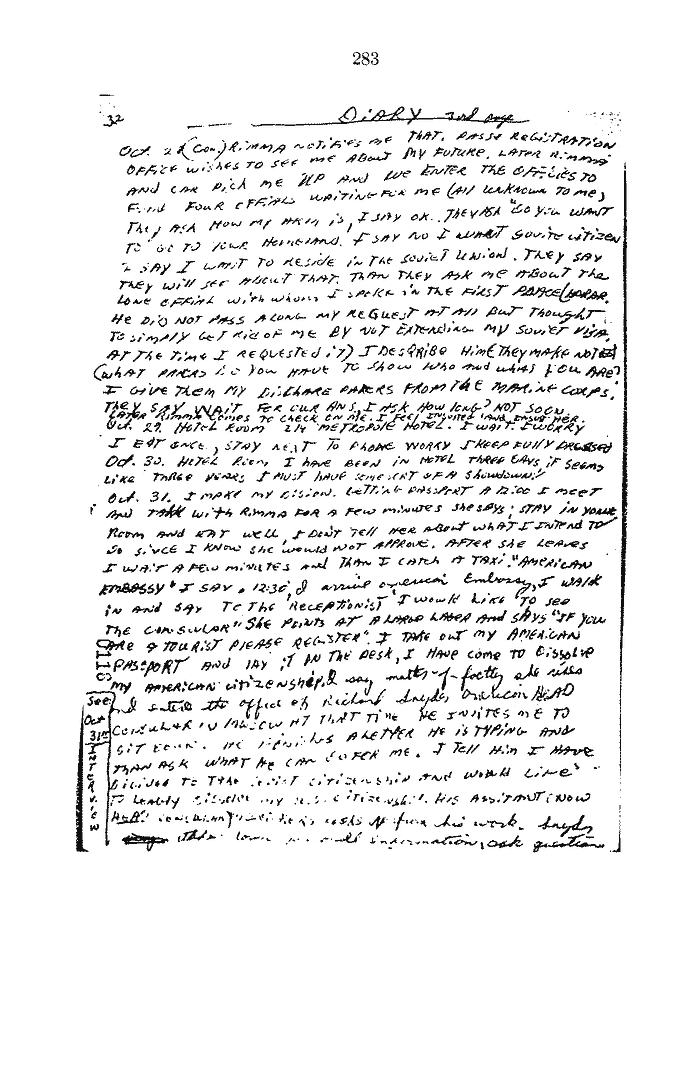 283
32
DIARY 3rd page
Oct. 28 (Con.) RIMMA NOTIFIES ME THAT. PASSE REGISTRATION
OFFICE WISHES TO SEE ME ABOUT MY FUTURE. LATER RIMMA
AND CAR PICK ME UP AND WE ENTER THE OFFICIES TO
FIND FOUR OFFIALS WAITING FOR ME (All UNKNOWN TO ME)
THEY ASK HOW MY ARM is, I SAY OK. THEY ASK "DO YOU WANT
TO GO TO YOUR HOMELAND. I SAY NO I WANT SOVITE CITIZEN
I SAY I WANT TO RESIDE IN THE SOVIET UNION. THEY SAY
THEY WILL SEE ABOUT THAT. THAN THEY ASK ME ABOUT THE
LONE OFFIAL WITH WHOM I SPOKE IN THE FIRST PLACE
HE DID NOT PASS ALONG MY REQUEST AT All BUT THOUGHT
TO SIMPLY GET RID OF ME BY NOT EXTENDING MY SOVIET VISA.
AT THE TIME I REQUESTED IT) I DESCRIBE HIM (THEY MAKE NOTES)
(WHAT PAPERS DO YOU HAVE TO SHOW WHO AND WHAT YOU ARE?
I GIVE THEM MY DISCHARE PAPERS FROM THE MARINE CORPS.
THEY SAY WAIT FOR OUR ANS. I ASK HOW LONG? NOT SOON
LATER RIMMA COMES TO CHECK ON ME. I FEEL INSULTED AND INSULT HER.
Oct. 29. HOTEL ROOM 214 METROPOLE HOTEL. I WAIT. I WORRY
I EAT ONCE, STAY NEXT TO PHONE WORRY I KEEP FULLY DRESSED
Oct. 30. HOTEL ROOM, I HAVE BEEN IN HOTEL THREE DAYS, IF SEEMS
LIKE THREE YEARS I MUST HAVE SOME SORT OF A SHOWDOWN!
Oct. 31. I MAKE MY DISION. GETTING PASSPORT A 12:00 I MEET
AND TALK WITH RIMMA FOR A FEW MINUTES SHE SAYS; STAY IN YOUR
ROOM AND EAT WELL, I DON'T TELL HER ABOUT WHAT I INTEND TO
DO SINCE I KNOW SHE WOULD NOT APPROVE. AFTER SHE LEAVES
I WAIT A FEW MINUTES and THAN I CATCH A TAXI. "AMERICAN
EMBASSY" I SAY. 12:30, I arrive American Embassy, I WALK
IN AND SAY TO THE RECEPTIONIST "I WOULD LIKE TO SEE
THE CONSULAR" SHE POINTS AT A LARGE LAGER AND SAYS "IF YOU
ARE A TOURIST PLEASE REGISTER". I TAKE OUT MY AMERICAN
PASSPORT AND LAY IT ON THE DESK, I HAVE COME TO DISSOLVE
MY AMERICAN CITIZENSHIP, I say matter-of-factly she rises
and enters the office of Richard Snyder American HEAD
CONSULAR IN MOSCOW AT THAT TIME. HE INVITES ME TO
SIT DOWN. HE FINISHES A LETTER HE IS TYPING AND
THAN ASK WHAT HE CAN DO FOR ME. I TELL HIM I HAVE
DICIDED TO TAKE SOVIET CITIZENSHIP AND WOULD LIKE
TO LEGALLY DISSOLVE MY U.S. CITIZENSHIP. HIS ASSITANT (NOW
HEAD CONSULAR) looks up from his work. Snyder
takes down personall information, ask questions
0116
See
Oct
31st
INTERVIEW